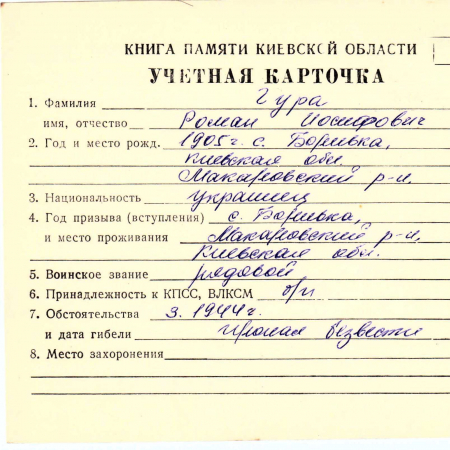 КНИГА ПАМЯТИ КИЕВСКОЙ ОБЛАСТИ
УЧЕТНАЯ КАРТОЧКА
1. Фамилия Гура
имя, отчество Роман Иосифович
2. Год и место рожд. 1905г. с. Боривка,
Киевская обл.
Макаровский р-н.
3. Национальность украинец
4. Год призыва (вступления) с. Боривка,
и место проживания Макаровский р-н,
Киевская обл.
5. Воинское звание рядовой
6. Принадлежность к КПСС, ВЛКСМ б/п
7. Обстоятельства 3. 1944г.
и дата гибели Пропал безвести
8. Место захоронения